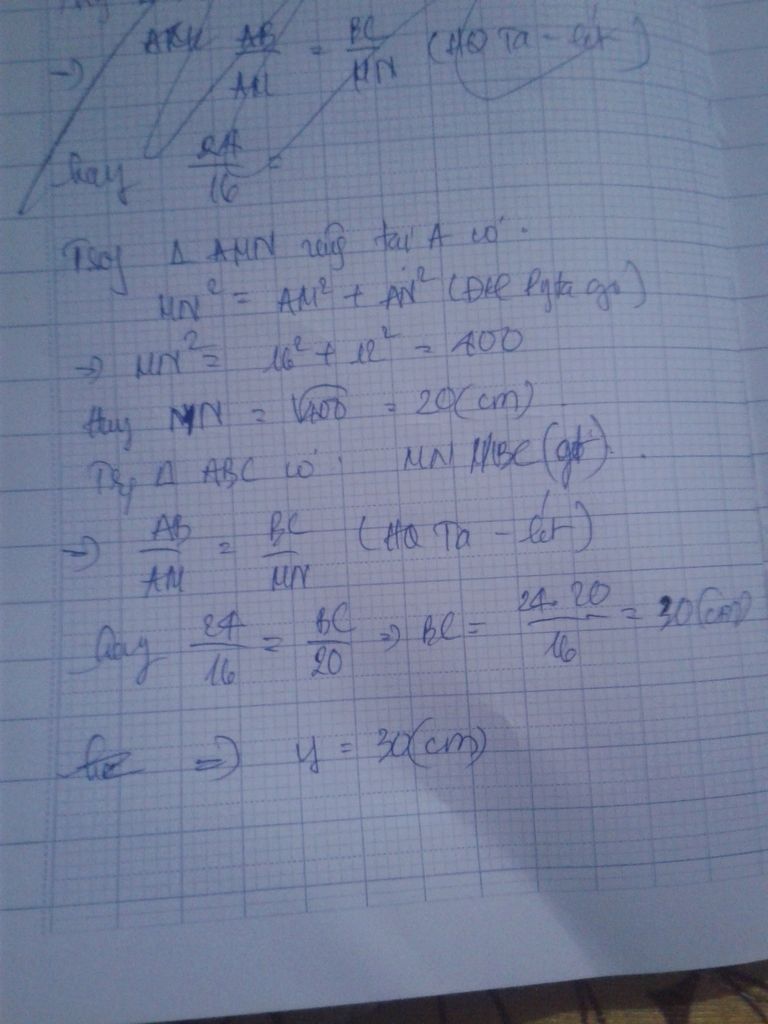 →) AB/AM = BC/MN (HQ Ta - lét)
hay 24/16 =
Δ AMN vuông tại A có:
MN² = AM² + AN² (ĐHL Pytago)
→ MN² = 16² + 12² = 400
Hay MN = √400 = 20(cm)
Δ ABC có: MN // BC (gt).
→) AB/AM = BC/MN (HQ Ta - lét)
hay 24/16 = BC/20 → BC = 24.20/16 = 30(cm)
=) y = 30(cm)